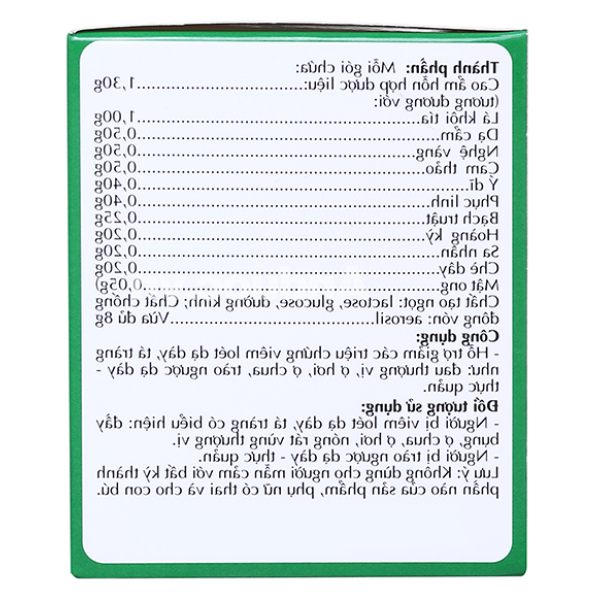 Thành phần: Mỗi gói chứa:
Cao ẩm hỗn hợp dược liệu:......1,30g
(tương đương với:
Lá khôi tía......1,00g
Dạ cẩm......0,50g
Nghệ vàng......0,50g
Cam thảo......0,50g
Ý dĩ......0,40g
Phục linh......0,40g
Bạch truật......0,25g
Hoàng kỳ......0,20g
Sa nhân......0,20g
Chè dây......0,20g
Mật ong......0,05g)
Chất tạo ngọt: lactose, glucose, đường kính; Chất chống
đông vón: aerosil......Vừa đủ 8g
Công dụng:
- Hỗ trợ giảm các triệu chứng viêm loét dạ dày, tá tràng
như: đau thượng vị, ợ hơi, ợ chua, trào ngược dạ dày -
thực quản.
Đối tượng sử dụng:
- Người bị viêm loét dạ dày, tá tràng có biểu hiện: đầy
bụng, ợ chua, ợ hơi, nóng rát vùng thượng vị.
- Người bị trào ngược dạ dày - thực quản.
Lưu ý: Không dùng cho người mẫn cảm với bất kỳ thành
phần nào của sản phẩm, phụ nữ có thai và cho con bú.